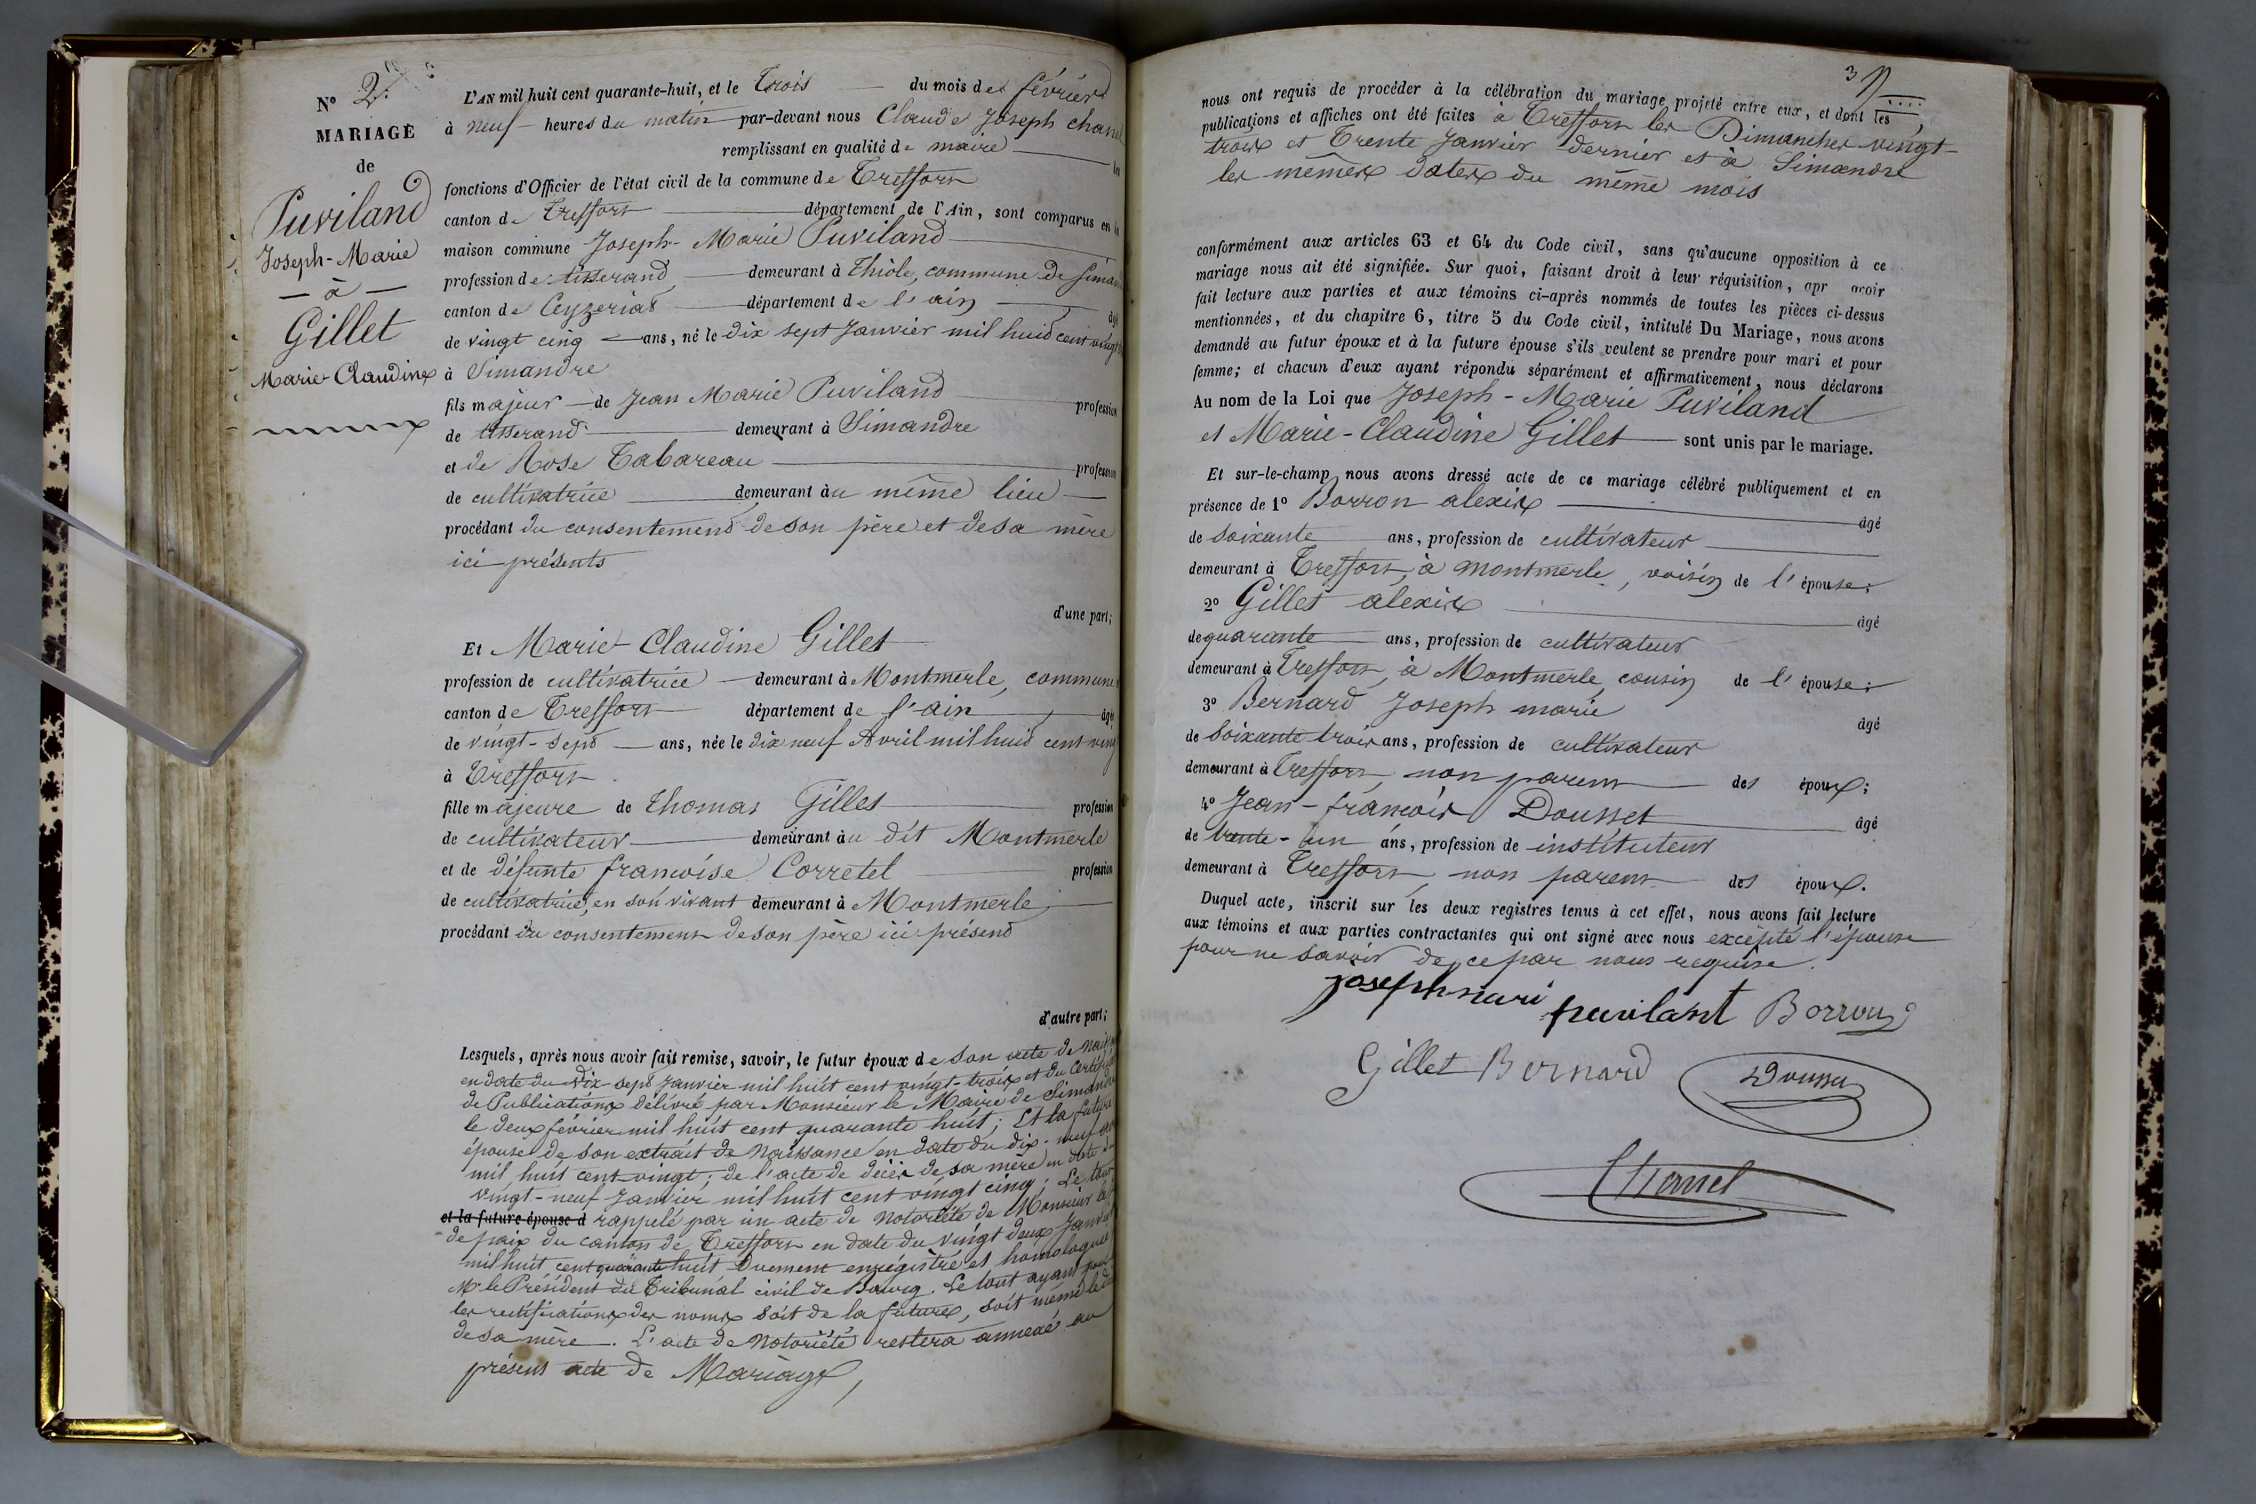 N° 2.
MARIAGE
de
Puviland
Joseph-Marie
— à —
Gillet
Marie-Claudine
L'AN mil huit cent quarante-huit, et le Trois du mois de février
à neuf heures du matin par-devant nous Claude Joseph Chanel
remplissant en qualité de maire les
fonctions d'Officier de l'état civil de la commune de Treffort
canton de Treffort département de l'Ain, sont comparus en la
maison commune Joseph-Marie Puviland
profession de tisserand demeurant à Thiole, commune de Simandre
canton de Ceyzeriat département de l'ain âgé
de vingt cinq ans, né le dix sept Janvier mil huit cent vingt
à Simandre
fils majeur de Jean Marie Puviland profession
de tisserand demeurant à Simandre
et de Rose Tabareau profession
de cultivatrice demeurant au même lieu
procédant du consentement de son père et de sa mère
ici présents
d'une part;
Et Marie Claudine Gillet
profession de cultivatrice demeurant à Montmerle, commune
canton de Treffort département de l'ain, âgée
de vingt-sept ans, née le dix neuf Avril mil huit cent vingt
à Treffort
fille majeure de Thomas Gillet profession
de cultivateur demeurant au dit Montmerle
et de défunte francoise Corretel profession
de cultivatrice, en son vivant demeurant à Montmerle
procédant du consentement de son père ici présent
d'autre part;
Lesquels, après nous avoir fait remise, savoir, le futur époux de son acte de
en date du dix-sept Janvier mil huit cent vingt-trois et du certificat
de Publications délivré par Monsieur le Maire de Simandre
le deux février mil huit cent quarante huit; Et la future
épouse de son extrait de Naissance en date du dix-neuf
mil huit cent vingt; de l'acte de décès de sa mère en date du
vingt-neuf Janvier mil huit cent vingt cinq; Le tout
et la future épouse d rappelé par un acte de Notoriété de Monsieur le
de paix du canton de Treffort en date du vingt deux Janvier
mil huit cent quarante huit Duement enregistré et homologué
Mr le Président du Tribunal civil de Bourg. Le tout ayant pour
les rectifications des noms soit de la future, soit même de
de sa mère. L'acte de Notoriété restera annexé au
présent acte de Mariage,
3
nous ont requis de procéder à la célébration du mariage projeté entre eux, et dont les
publications et affiches ont été faites à Treffort les Dimanches vingt-
trois et Trente Janvier dernier et à Simandre
les mêmes dates du même mois
conformément aux articles 63 et 64 du Code civil, sans qu'aucune opposition à ce
mariage nous ait été signifiée. Sur quoi, faisant droit à leur réquisition, apr avoir
fait lecture aux parties et aux témoins ci-après nommés de toutes les pièces ci-dessus
mentionnées, et du chapitre 6, titre 5 du Code civil, intitulé Du Mariage, nous avons
demandé au futur époux et à la future épouse s'ils veulent se prendre pour mari et pour
femme; et chacun d'eux ayant répondu séparément et affirmativement, nous déclarons
Au nom de la Loi que Joseph-Marie Puviland
et Marie-Claudine Gillet sont unis par le mariage.
Et sur-le-champ nous avons dressé acte de ce mariage célébré publiquement et en
présence de 1° Borron alexis âgé
de soixante ans, profession de cultivateur
demeurant à Treffort, à Montmerle, voisin de l'épouse;
2° Gillet alexis âgé
de quarante ans, profession de cultivateur
demeurant à Treffort, à Montmerle, cousin de l'épouse;
3° Bernard Joseph marie âgé
de soixante trois ans, profession de cultivateur
demeurant à Treffort, non parent des époux;
4° Jean-françois Dousset âgé
de trente-un ans, profession de instituteur
demeurant à Treffort, non parent des époux.
Duquel acte, inscrit sur les deux registres tenus à cet effet, nous avons fait lecture
aux témoins et aux parties contractantes qui ont signé avec nous excepté l'épouse
pour ne savoir de ce par nous requise.
joseph mari puvilant Borron
Gillet Bernard Dousset
Chanel